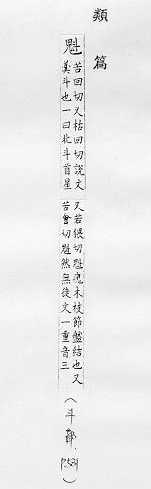 類篇
魁
苦回切又枯回切說文
羹斗也一曰北斗首星
又苦猥切魁瘣木枝節盤結也又
苦會切魁然無徒文一重音三
(斗部,